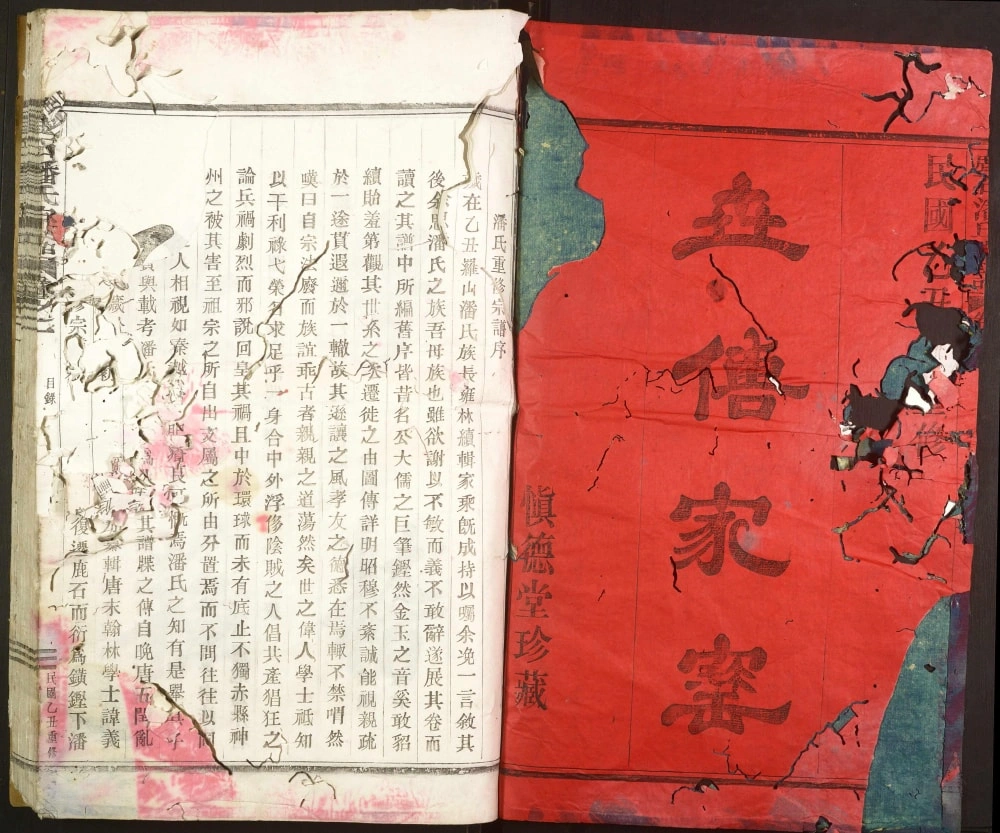 民國乙丑
世傳家寶
愼德堂珍藏
潘氏重修宗譜序
歲在乙丑羅山潘氏族長雍林續輯家乘旣成持以囑余浼一言敘其
後余思潘氏之族吾母族也雖欲謝以不敏而義不敢辭遂展其卷而
讀之其譜中所編舊序皆昔名公大儒之巨筆鏗然金玉之音奚敢貂
續貽羞第觀其世系之來遷徙之由圖傳詳明昭穆不紊誠能視親疏
於一途貫遐邇於一轍故其遜讓之風孝友之德悉在焉輒不禁喟然
嘆曰自宗法廢而族誼乖古者親親之道蕩然矣世之偉人學士祗知
以干利祿弋榮名求足乎一身合中外浮侈陰賊之人倡共產猖狂之
論兵禍劇烈而邪說回皇其禍且中於環球而未有底止不獨赤縣神
州之被其害至祖宗之所自出支屬之所由分置焉而不問往往以
人相視如秦越
潘氏之知有是舉
與載考潘
其譜牒之傳自晚唐五閏亂
輯唐末翰林學士諱義
修宗
復遷鹿石而衍爲鐄鏗下潘
潘氏
目錄
民國乙丑重修